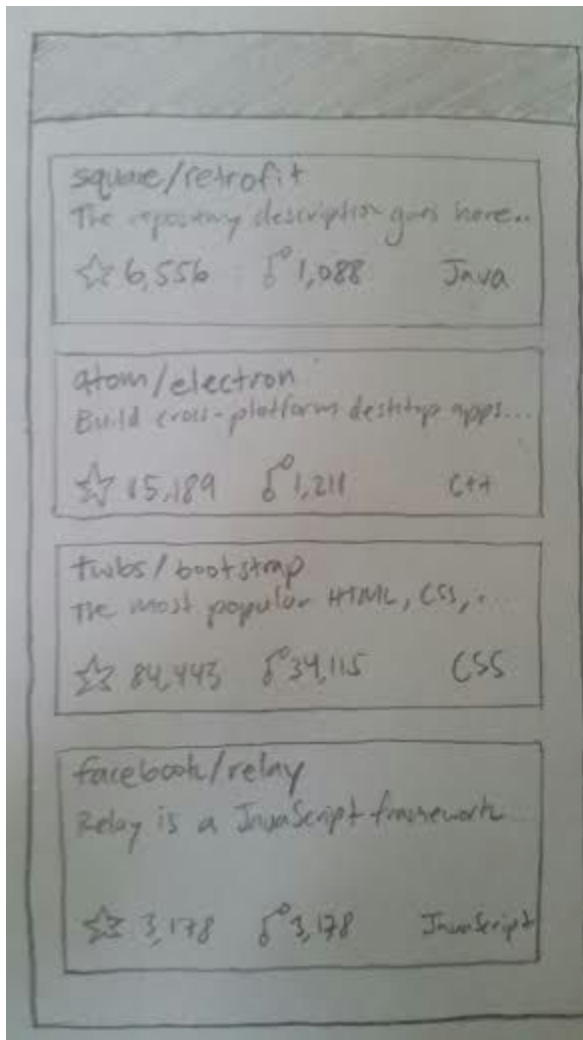 square/retrofit
The repository description goes here..
6,556 1,088 Java
atom/electron
Build cross-platform desktop apps...
15,189 1,211 C++
twbs/bootstrap
The most popular HTML, CSS, ...
84,443 34,115 CSS
facebook/relay
Relay is a JavaScript framework...
3,178 3,178 JavaScript